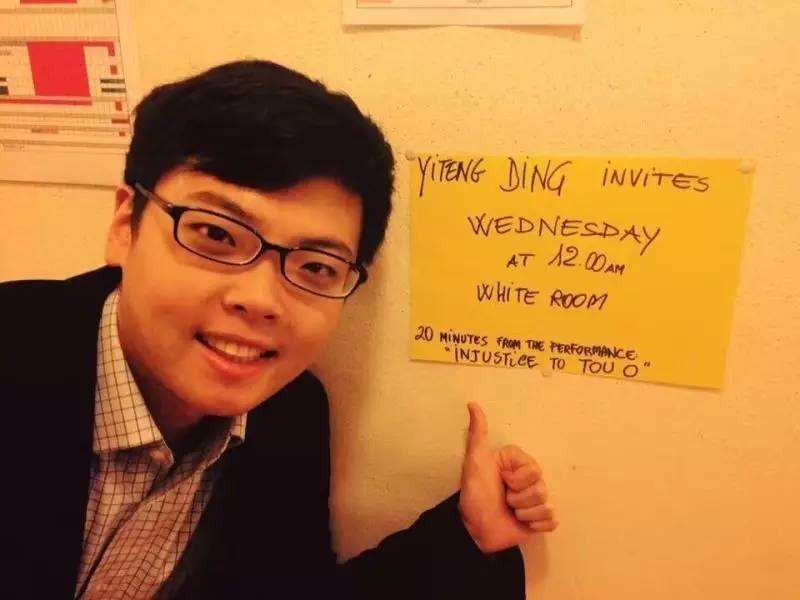 YITENG DING INVITES
WEDNESDAY
AT 12.00 AM
WHITE ROOM
20 MINUTES FROM THE PERFORMANCE
"INJUSTICE TO TOU O"